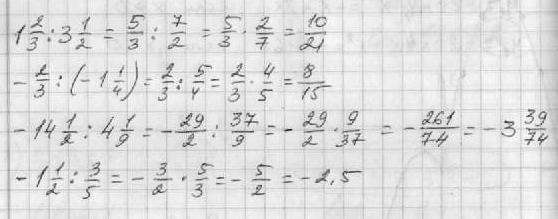 1 2/3 : 3 1/2 = 5/3 : 7/2 = 5/3 · 2/7 = 10/21
- 2/3 : (-1 1/4) = 2/3 : 5/4 = 2/3 · 4/5 = 8/15
-14 1/2 : 4 1/9 = - 29/2 : 37/9 = - 29/2 · 9/37 = - 261/74 = -3 39/74
-1 1/2 : 3/5 = - 3/2 · 5/3 = - 5/2 = -2,5